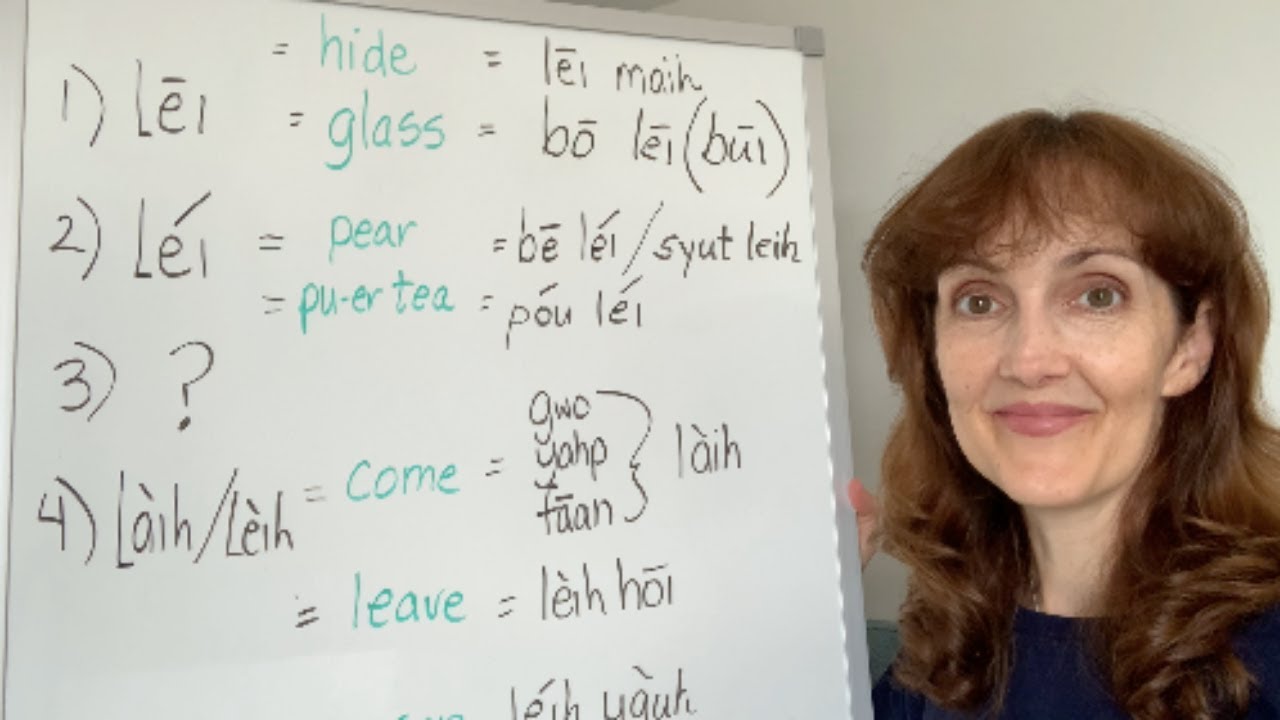 1) Lēi = hide = lēi màih
= glass = bō lēi (būi)
2) Léi = pear = bē léi / syut leih
= pu-er tea = póu léi
3) ?
4) Làih/Lèih = come = gwo
yahp } làih
fāan
= leave = lèih hōi
léih